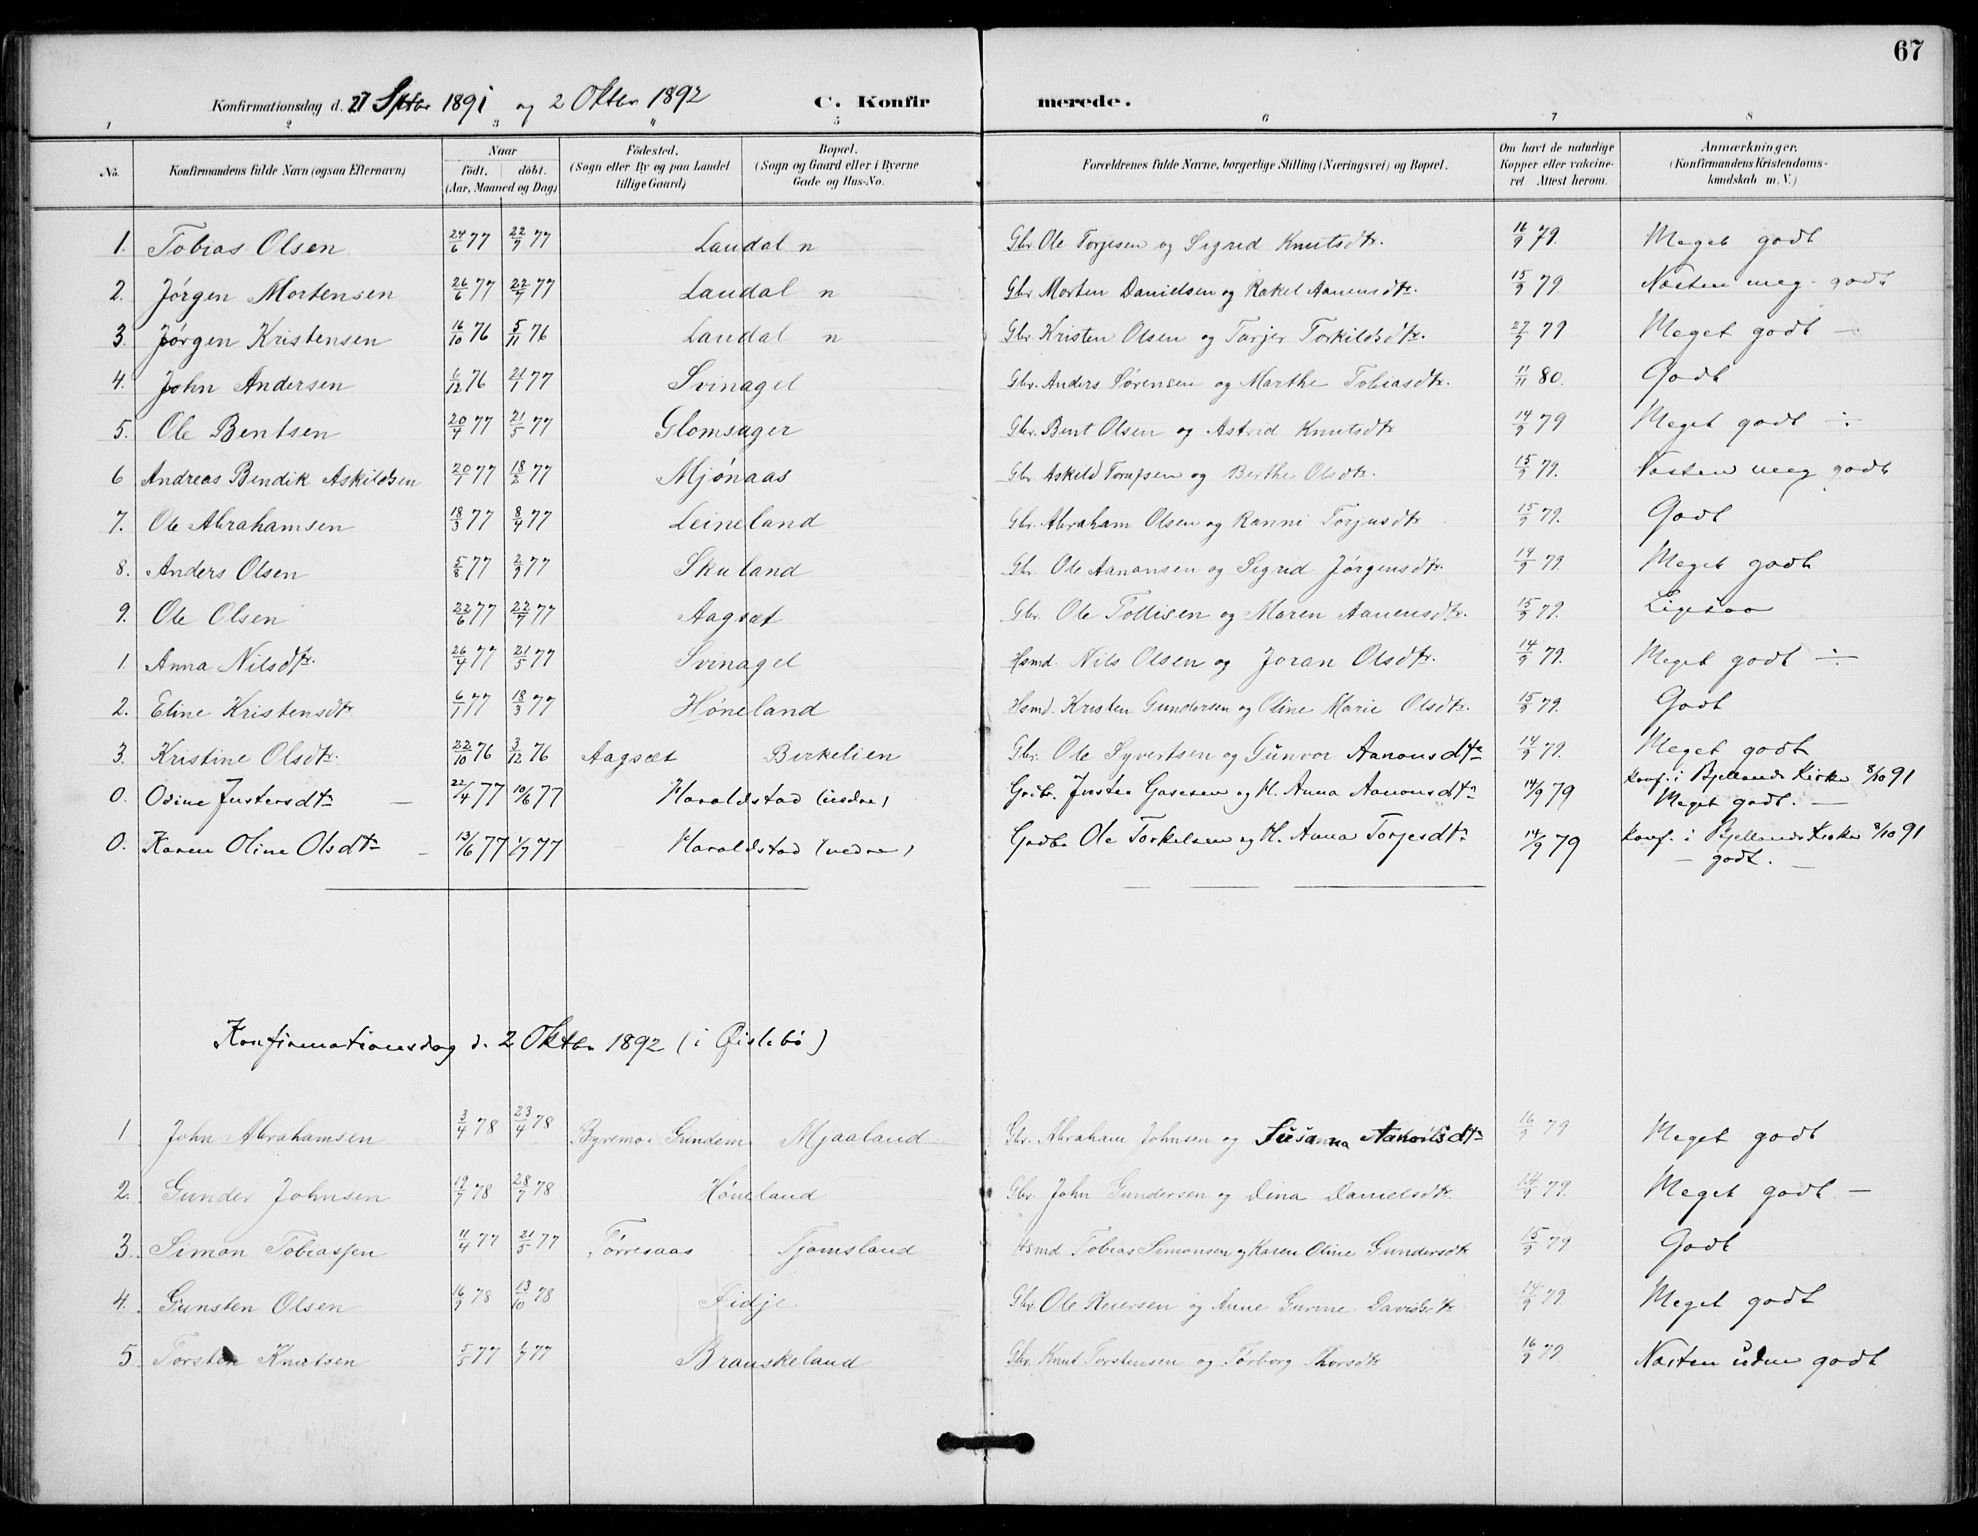 67
Konfirmationsdag d. 27 Septbr 1891 og 2 Oktbr 1892 C. Konfirmerede.
1 2 3 4 5 6 7 8
No. Konfirmandens fulde Navn (ogsaa Efternavn) Naar født. døbt. (Aar, Maaned og Dag) Fødested. (Sogn eller By og paa Landet tillige Gaard) Bopæl. (Sogn og Gaard eller i Byerne Gade og Hus-No. Forældrenes fulde Navne, borgerlige Stilling (Næringsvei) og Bopæl. Om havt de naturlige Kopper eller vakcineret Attest herom. Anmærkninger, (Konfirmandens Kristendomskundskab m. V.)
1. Tobias Olsen 24/6 77 22/7 77 Laudal n Gbr. Ole Torjesen og Sigrid Knutsdtr. 16/9 79. Meget godt
2. Jørgen Mortensen 26/6 77 22/7 77 Laudal n Gbr. Morten Danielsen og Rakel Aanensdtr. 15/9 79. Næsten meg. godt
3. Jørgen Kristensen 16/10 76 5/11 76 Laudal n Gbr. Kristen Olsen og Tarjer Torkildsdtr. 27/7 79 Meget godt –
4. John Andersen 6/12 76 21/1 77 Svinagel Gbr. Anders Sørensen og Marthe Tobiasdtr. 11/11 80. Godt
5. Ole Bentsen 20/4 77 21/5 77 Glomsager Gbr. Bent Olsen og Astrid Knutsdtr 14/9 79 Meget godt ÷
6 Andreas Bendik Askildsen 20/1 77 18/2 77 Mjónaas Gbr. Askeld og Berthe Olsdtr. 15/9 79. Næsten meg godt
7. Ole Abrahamsen 18/3 77 8/4 77 Leineland Gbr. Abraham Olsen og Ranni Torjusdtr 15/9 79. Godt
8. Anders Olsen 5/8 77 2/9 77 Skuland Gbr. Ole Aanonsen og Sigrid Jørgensdtr. 14/9 79. Meget godt
9. Ole Olsen 22/6 77 22/7 77 Aagsæt Gbr. Ole Tollisen og Maren Aanensdtr. 15/9 79. Ligesaa
1. Anna Nilsdtr. 26/4 77 21/5 77 Svinagel Hsmd. Nils Olsen og Joran Olsdtr. 14/9 79. Meget godt ÷
2. Eline Kristensdtr 6/1 77 18/3 77 Høneland Hsmd. Kristen Gundersen og Oline Marie Olsdtr. 15/9 79. Godt
3. Kristine Olsdtr. 22/10 76 3/12 76 Aagsæt Birkelien Gbr. Ole Syvertsen og Gunvor Aanonsdtr 14/9 79. Meget godt
0. Odine Justersdtr – 22/4 77 10/6 77 Haraldstad (nedre) Gdbr. og H. Anna Aanonsdtr 14/9 79 konf. i Bjellands Kirke 8/10 91
Meget godt. –
0. Karen Oline Olsdtr – 13/6 77 1/7 77 Haraldstad (nedre) Gaardbr. Ole Torkelsen og H. Anna Torjesdtr 14/9 79 konf. i Bjellands Kirke 8/10 91
– godt. –
Konfirmationsdag d. 2 Oktbr 1892 (i Øislebø)
1 John Abrahamsen 3/4 78 23/4 78 Byremo i Grindem Mjaaland Gbr. Abraham Johnsen og Susanna Aanonsdtr 16/9 79 Meget godt
2. Gunder Johnsen 19/7 78 28/7 78 Høneland Gbr. John Gundersen og Dina Danielsdtr. 14/9 79. Meget godt –
3. Simon Tobiassen 11/4 77 21/5 77 Torresaas Tjomsland Hsmd Tobias Simonsen og Karen Oline Gundersdtr 15/9 79 Godt
4. Gunsten Olsen 16/9 78 13/10 78 Fidje. Gbr. Ole Reiersen og Anne Davidsdtr 14/9 79. Meget godt
5. Torsten Knutsen 5/5 77 1/7 77 Brauskeland Gbr. Knut Torstensen og Torborg Thorsdtr 16/9 79 Næsten uden godt